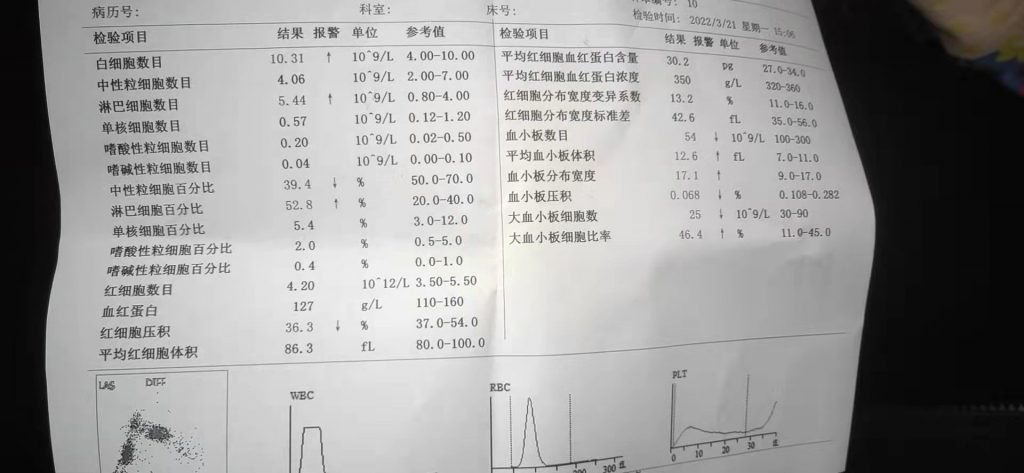 病历号：
科室：
床号：
10
检验时间：2022/3/21 星期一 15:06
检验项目 结果 报警 单位 参考值
白细胞数目 10.31 ↑ 10^9/L 4.00-10.00
中性粒细胞数目 4.06 10^9/L 2.00-7.00
淋巴细胞数目 5.44 ↑ 10^9/L 0.80-4.00
单核细胞数目 0.57 10^9/L 0.12-1.20
嗜酸性粒细胞数目 0.20 10^9/L 0.02-0.50
嗜碱性粒细胞数目 0.04 10^9/L 0.00-0.10
中性粒细胞百分比 39.4 ↓ % 50.0-70.0
淋巴细胞百分比 52.8 ↑ % 20.0-40.0
单核细胞百分比 5.4 % 3.0-12.0
嗜酸性粒细胞百分比 2.0 % 0.5-5.0
嗜碱性粒细胞百分比 0.4 % 0.0-1.0
红细胞数目 4.20 10^12/L 3.50-5.50
血红蛋白 127 g/L 110-160
红细胞压积 36.3 ↓ % 37.0-54.0
平均红细胞体积 86.3 fL 80.0-100.0
检验项目 结果 报警 单位 参考值
平均红细胞血红蛋白含量 30.2 pg 27.0-34.0
平均红细胞血红蛋白浓度 350 g/L 320-360
红细胞分布宽度变异系数 13.2 % 11.0-16.0
红细胞分布宽度标准差 42.6 fL 35.0-56.0
血小板数目 54 ↓ 10^9/L 100-300
平均血小板体积 12.6 ↑ fL 7.0-11.0
血小板分布宽度 17.1 ↑ 9.0-17.0
血小板压积 0.068 ↓ % 0.108-0.282
大血小板细胞数 25 ↓ 10^9/L 30-90
大血小板细胞比率 46.4 ↑ % 11.0-45.0
LAS DIFF
WBC
RBC
200 300 fL
PLT
0 10 20 30 fL